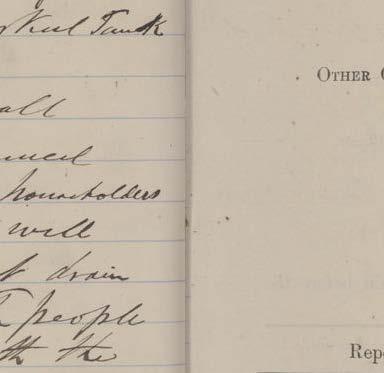 Tank
all
householders
will
drain
people
the
OTHER
Rep